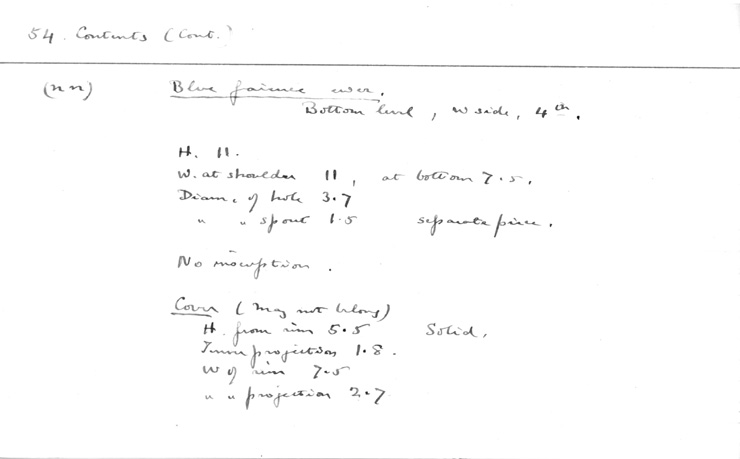 54. Contents (Cont.)
(nn) Blue faience ewer.
Bottom level, W side, 4th.
H. 11.
W. at shoulder 11, at bottom 7.5.
Diam. of hole 3.7
" " spout 1.5 separate piece.
No inscription.
Cover (may not belong)
H. from rim 5.5 Solid.
Inner projection 1.8.
W of rim 7.5
" " projection 2.7